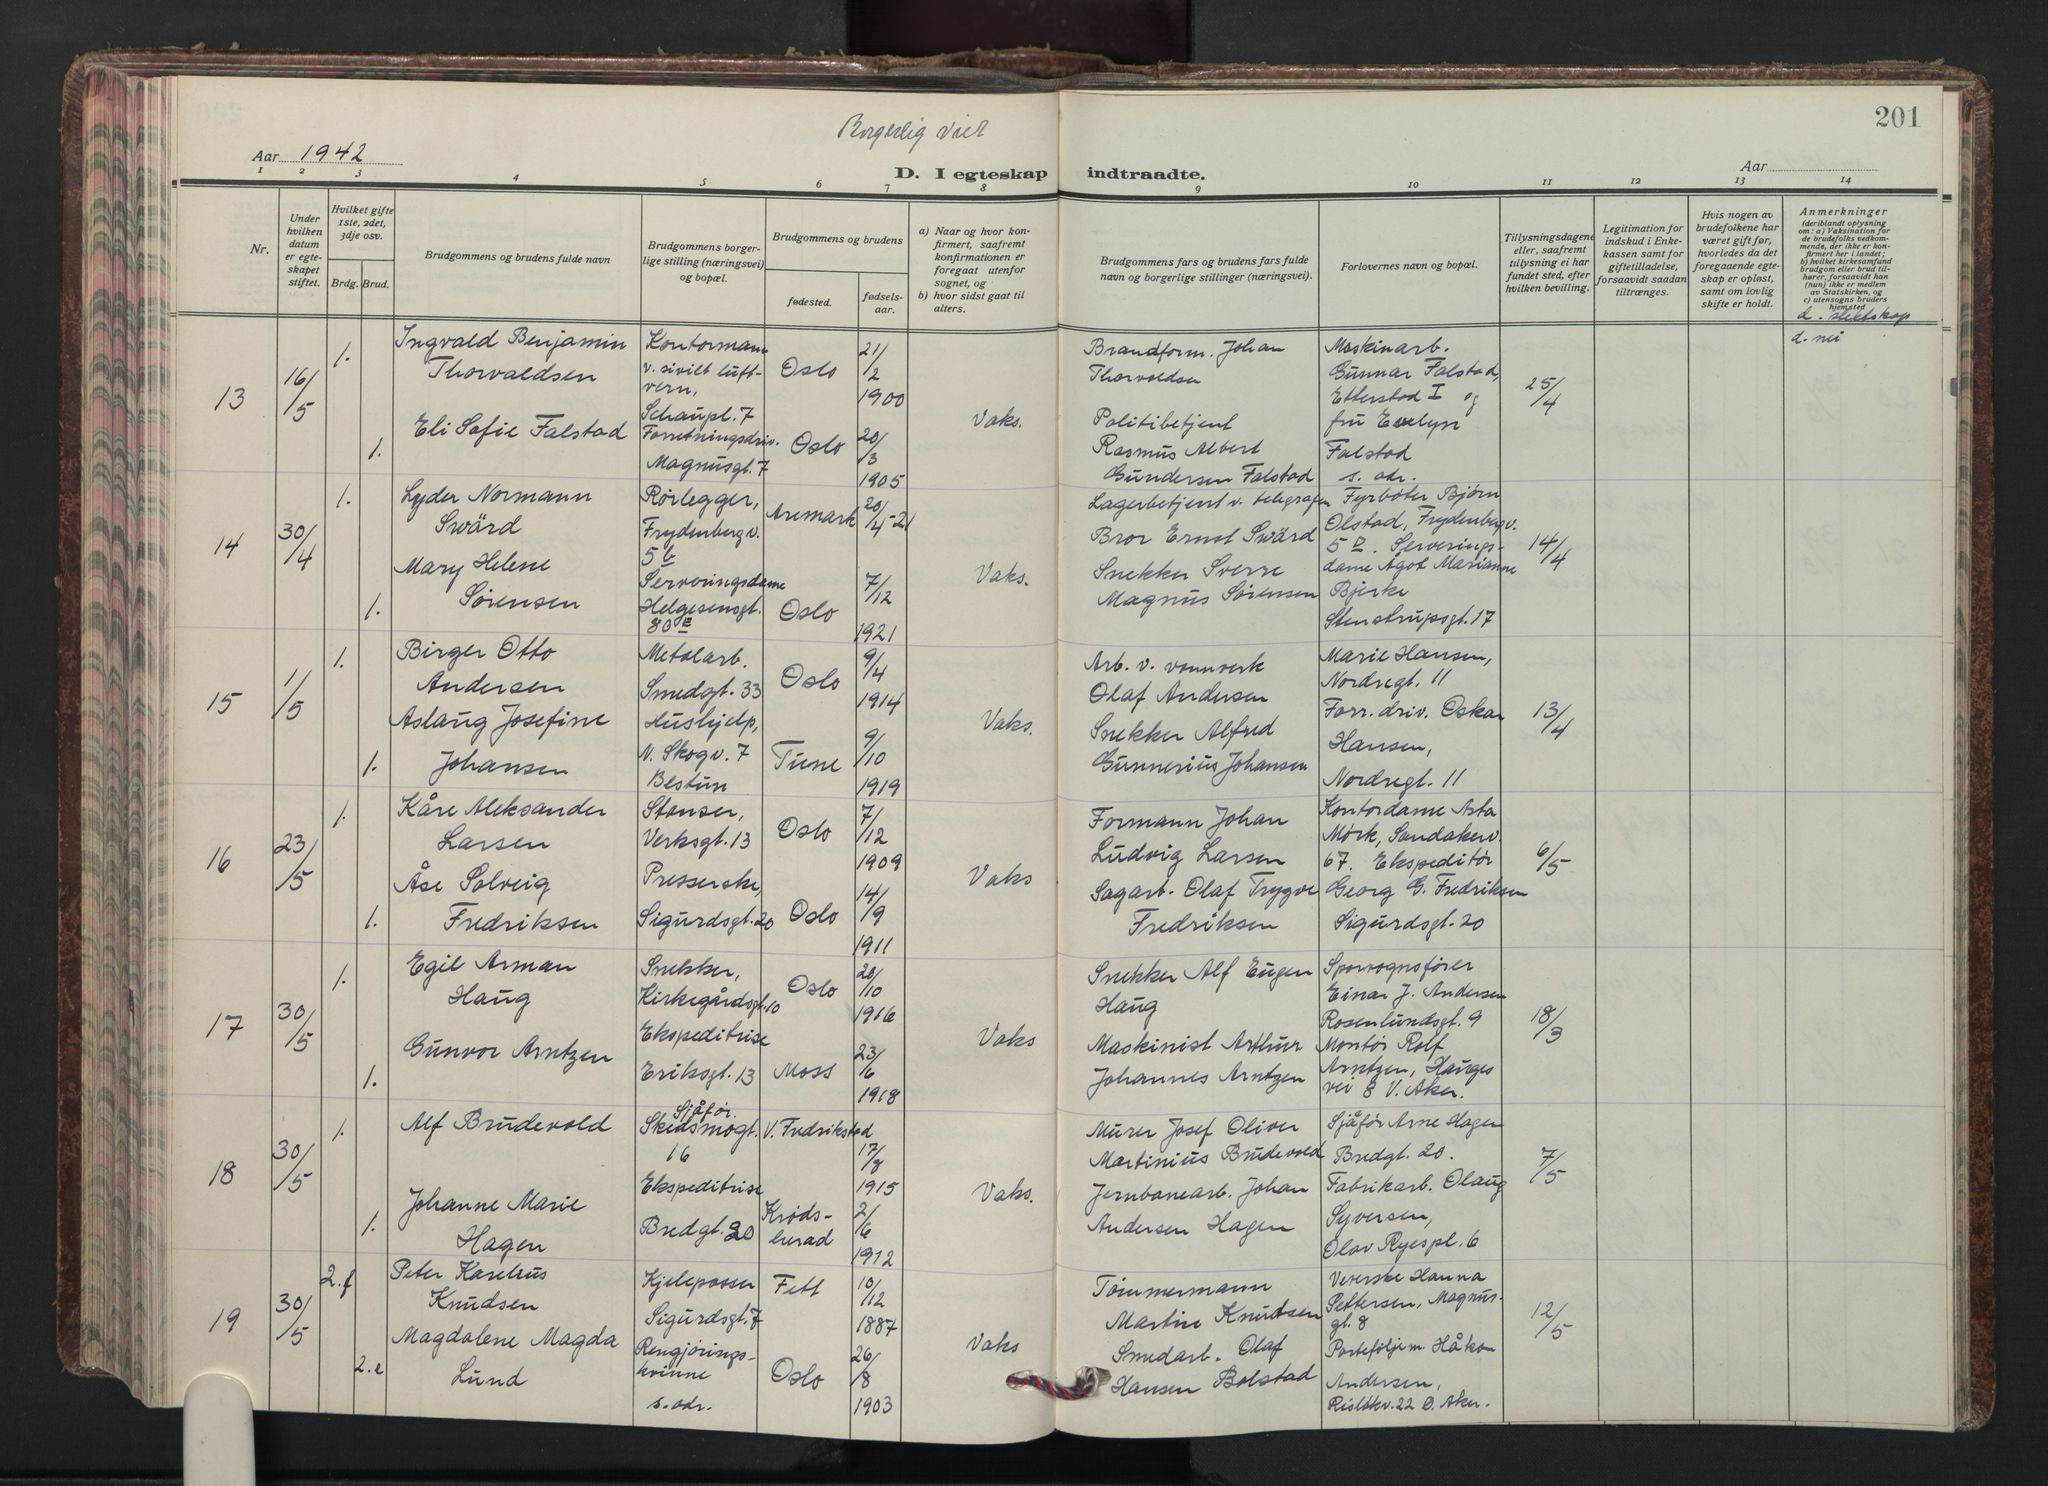 201
Borgerlig viet
Aar 1942
Aar
D. I egteskap indtraadte.
1 2 3 4 5 6 7 8 9 10 11 12 13 14
Nr.
Under hvilken datum er egteskapet stiftet.
Hvilket gifte 1ste, 2det, 3dje osv.
Brdg. Brud.
Brudgommens og brudens fulde navn
Brudgommens borgerlige stilling (næringsvei) og bopæl.
Brudgommens og brudens
fødested.
fødselsaar.
a) Naar og hvor konfirmert, saafremt konfirmationen er foregaat utenfor sognet, og
b) hvor sidst gaat til alters.
Brudgommens fars og brudens fars fulde navn og borgerlige stillinger (næringsvei).
Forlovernes navn og bopæl.
Tillysningsdagene eller, saafremt tillysning ei har fundet sted, efter hvilken bevilling.
Legitimation for indskud i Enkekassen samt for giftetilladelse, forsaavidt saadan tiltrænges.
Hvis nogen av brudefolkene har været gift før, hvorledes da det foregaaende egteskap er opløst, samt om lovlig skifte er holdt.
Anmerkninger
(deriblandt oplysning om: a) Vaksination for de brudefolks vedkommende, der ikke er konfirmert her i landet; b) hvilket kirkesamfund brudgom eller brud tilhører, forsaavidt han (nun) ikke er medlem av Statskirken, og c) utensogns bruders hjemsted
d. slektskap
d. nei
13
16/5
1.
Ingvald Benjamin
Thorvaldsen
Kontormann
v. sivilt luft-
vern,
Schaupl. 7
Oslo
21/2
1900
1.
Eli Sofie Falstad
Forretningsdriv.
Magnusgt. 7
Oslo
20/3
1905
Vaks.
Brandform. Johan
Thorvoldsen
Politibetjent
Rasmus Albert
Gundersen Falstad
Maskinarb.
Gunnar Falstad,
Etterstad I og
fru Evelyn
Falstad
s. adr.
25/4
14
30/4
1.
Lyder Normann
Swärd
Rørlegger,
Frydenbergv.
5 b
Aremark
20/4-21
1.
Mary Helene
Sørensen
Serveringsdame
Helgesensgt.
80 E
Oslo
7/12
1921
Vaks.
Lagerbetjent v. telegrafen
Bror Ernst Swärd
Snekker Sverre
Magnus Sørensen
Fyrbøter Bjørn
Olstad, Frydenbergv.
5 D. Serverings-
dame Ågot Marianne
Bjerke
Stenstrupsgt. 17
14/4
15
1/5
1.
Birger Otto
Andersen
Metalarb.
Smedgt. 33
Oslo
9/4
1914
1.
Aslaug Josefine
Johansen
Hushjelp,
N. Skogv. 7
Bestun
Tune
9/10
1919
Vaks.
Arb. v. vannverk
Olaf Andersen
Snekker Alfred
Gunnerius Johansen
Marie Hansen,
Nordregt. 11
Forr. driv. Oskar
Hansen,
Nordregt. 11
13/4
16
23/5
1.
Kåre Aleksander
Larsen
Stanser,
Verksgt. 13
Oslo
7/12
1909
1.
Åse Solveig
Fredriksen
Presserske,
Sigurdsgt. 20
Oslo
14/9
1911
Vaks
Formann Johan
Ludvig Larsen
Sagarb. Olaf Trygve
Fredriksen
Kontordame Asta
Mørk, Sandakerv.
67. Ekspeditør
Georg G. Fredriksen
Sigurdsgt. 20
6/5
17
30/5
1.
Egil Arman
Haug
Snekker,
Kirkegårdsgt. 10
Oslo
20/10
1916
1.
Gunvor Arntzen
Ekspeditrise
Eriksgt. 13
Moss
23/6
1918
Vaks
Snekker Alf Eugen
Haug
Maskinist Arthur
Johannes Arntzen
Sporvognsfører
Einar J. Andersen
Rosenlundsgt. 9
Montør Rolf
Arntzen, Hauges
vei 8 V. Aker.
18/3
18
30/5
1.
Alf Brudevold
Sjåfør.
Skedsmogt.
16
V. Fredrikstad
17/8
1915
1.
Johanne Marie
Hagen
Ekspeditrise
Bredgt. 20
Krøds-
herad
2/6
1912
Vaks.
Murer Josef Oliver
Martinius Brudevold
Jernbanearb. Johan
Andersen Hagen
Sjåfør Arne Hagen
Bredgt. 20.
Fabrikarb. Olaug
Syversen,
Olav Ryespl. 6
7/5
19
30/5
2. f
Peter Karelius
Knudsen
Kjelepasser
Sigurdsgt. 7
Fett
10/12
1887
2. e
Magdalene Magda
Lund
Rengjørings-
kvinne
s. adr.
Oslo
26/8
1903
Vaks
Tømmermann
Martin Knutsen
Smedarb. Olaf
Hansen Bolstad
Veverske Hanna
Pettersen, Magnus-
gt. 8
Porteføljem. Håkon
Andersen,
Risløkv. 22 Ø. Aker.
12/5